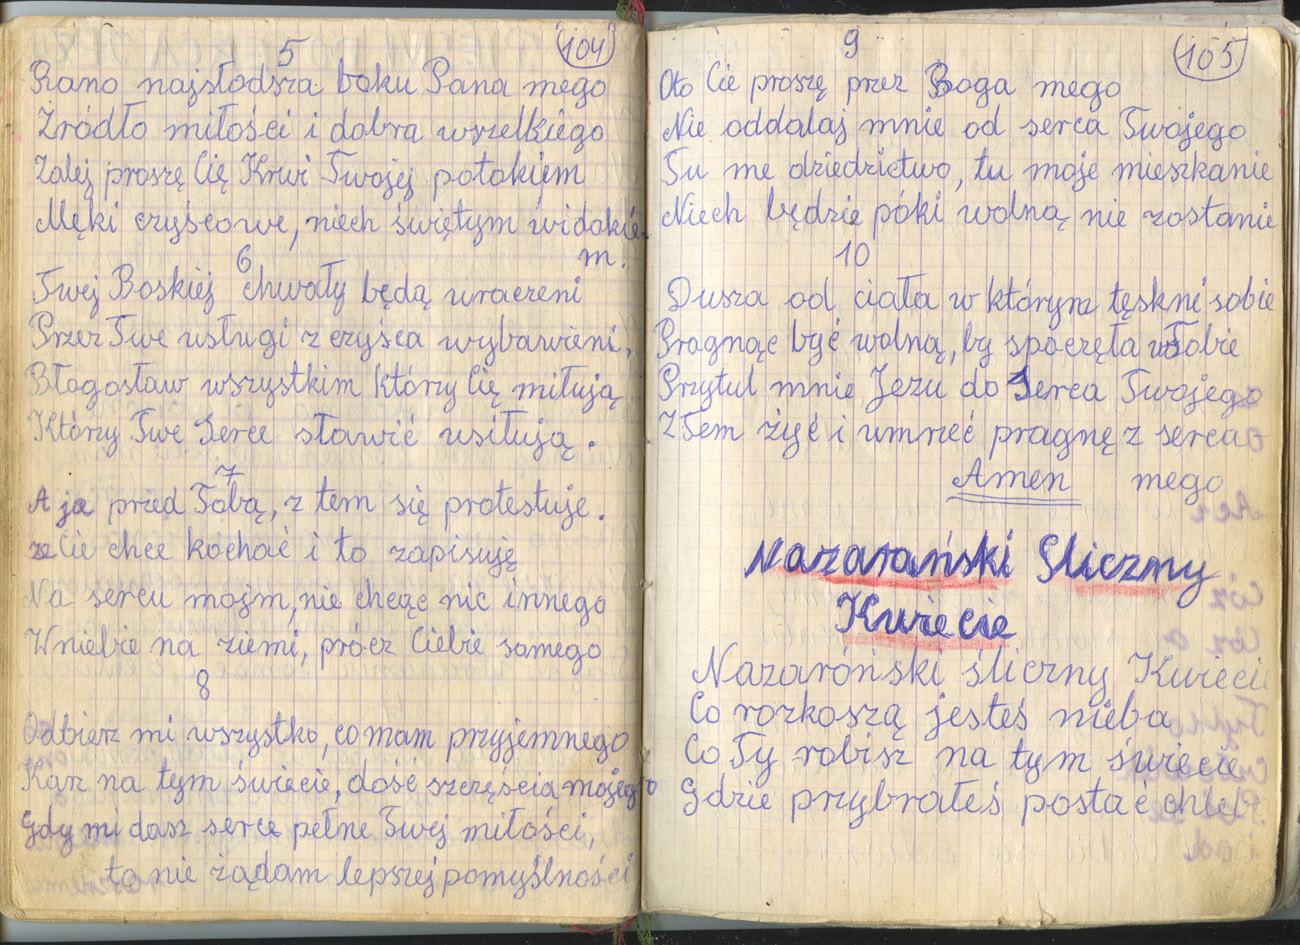 104
5
Rano najsłodsza boku Pana mego
Źródło miłości i dobra wszelkiego
Zalej proszę Cię Krwi Twojej potokiem
Męki czyścowe, niech świętym widokie
m.
6
Twej Boskiej chwały będą uraczeni
Przez Twe usługi z czyśca wybawieni,
Błogosław wszystkim którzy Cię miłują
Którzy Twe Serce sławić usiłują.
7
A ja przed Tobą, z tem się protestuje.
że Cie chce kochać i to zapisuję
Na sercu mojm, nie chcąc nic innego
W niebie na ziemi, prócz Ciebie samego
8
Odbierz mi wszystko, co mam przyjemnego
Karz na tym świecie, dość szczęścia mojego
Gdy mi dasz serce pełne Twej miłości,
to nie żądam lepszej pomyślności
105
9
Oto Cie proszę przez Boga mego
Nie oddalaj mnie od serca Twojego
Tu me dziedzictwo, tu moje mieszkanie
Niech będzie póki wolną nie zostanie
10
Dusza od ciała w którym tęskni sobie
Pragnąc być wolną, by spoczęła w Tobie
Przytul mnie Jezu do Serca Twojego
Z Tem żyć i umrzeć pragnę z serca
Amen mego
Nazarański Sliczny
Kwiecie
Nazaróński śliczny Kwiecie
Co rozkoszą jesteś nieba
Co Ty robisz na tym świecie
Gdzie przybrałeś postać chleb